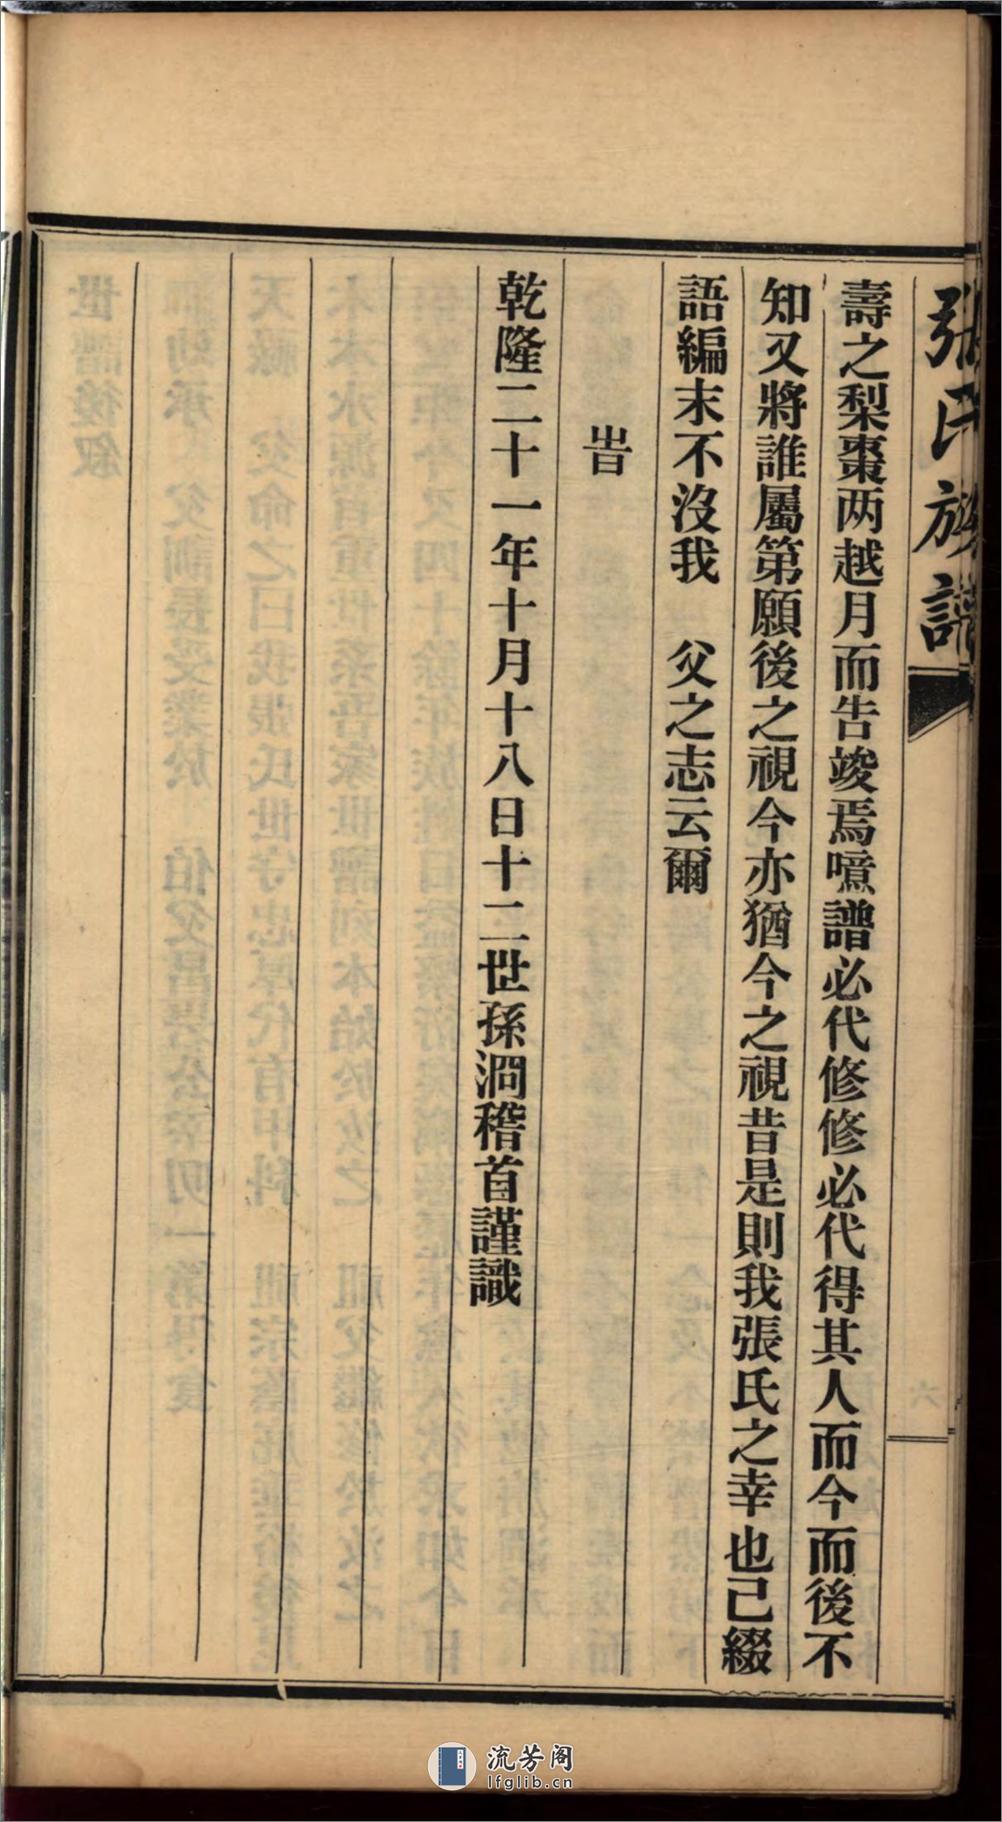 張氏族譜
壽之梨棗两越月而告竣焉噫譜必代修修必代得其人而今而後不
知又將誰屬第願後之視今亦猶今之視昔是則我張氏之幸也已綴
語編末不沒我　父之志云爾
旹
乾隆二十一年十月十八日十二世孫泂稽首謹識
六
流芳阁
lfglib.cn